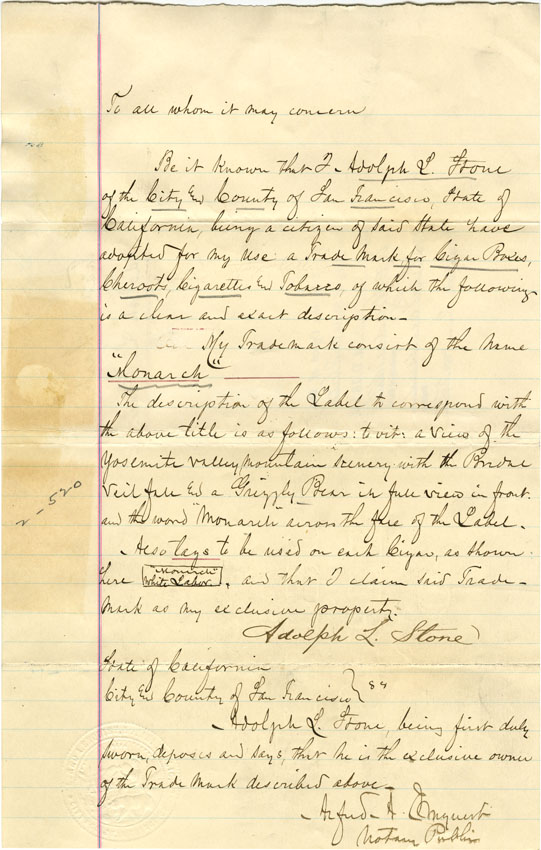 To all whom it may concern
Be it known that I Adolph L. Stone
of the City & County of San Francisco, State of
California, being a citizen of said State have
adopted for my use a Trade Mark for Cigar Boxes,
Cheroots, Cigarettes & Tobacco, of which the following
is a clear and exact description—
My Trademark consist of the Name
"Monarch"
The description of the Label to correspond with
the above title is as follows: to wit: a view of the
Yosemite Valley, Mountain Scenery with the Bridal
Veil fall & a Grizzly Bear in full view in front
and the word "Monarch" across the face of the Label.
Also tags to be used on each Cigar, as shown
here "Monarch" White Labor, and that I claim said Trade-
mark as my exclusive property.
Adolph L. Stone
State of California
City & County of San Francisco } ss
Adolph L. Stone, being first duly
sworn, deposes and says, that he is the exclusive owner
of the Trade Mark described above—
Alfred A.
Notary Public
2-520